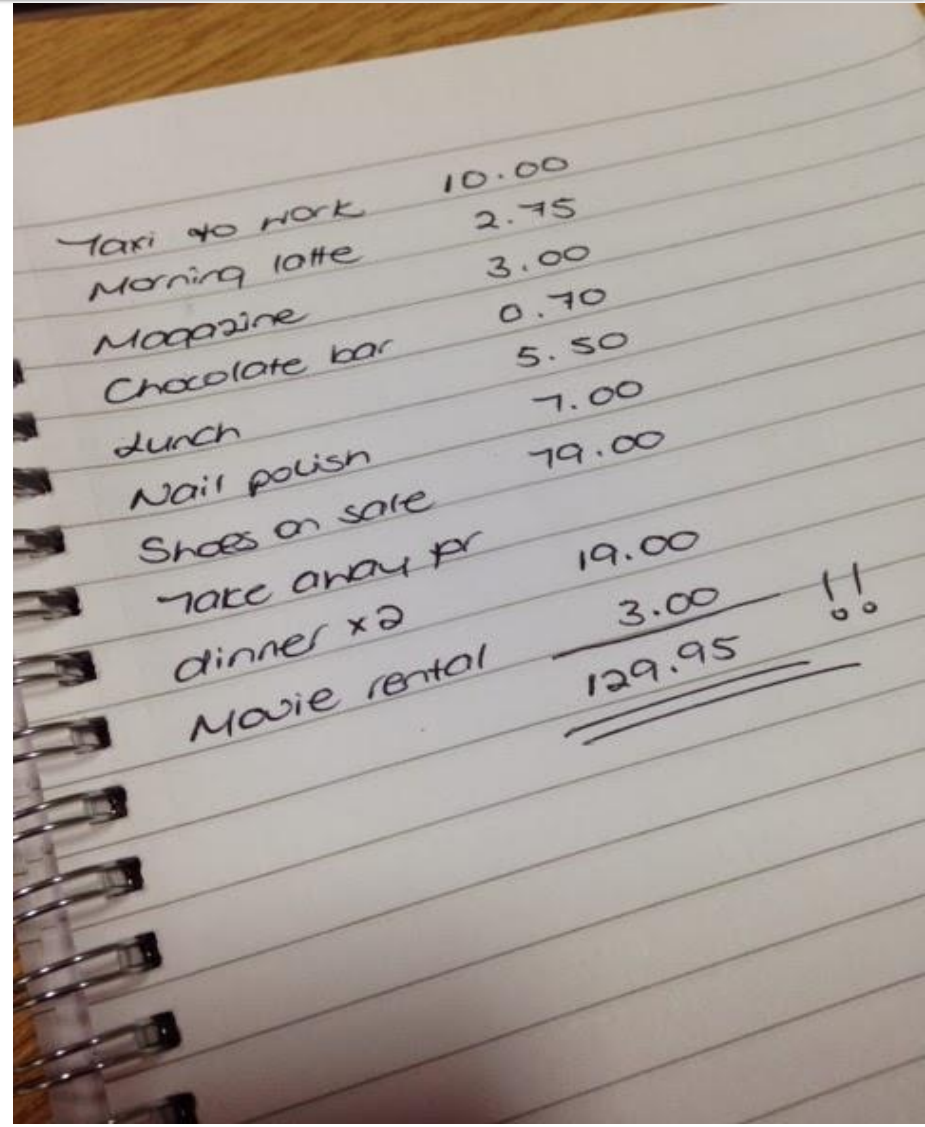 Taxi to work 10.00
Morning latte 2.75
Magazine 3.00
Chocolate bar 0.70
Lunch 5.50
Nail polish 7.00
Shoes on sale 79.00
Take away for
dinner x2 19.00
Movie rental 3.00
129.95 !!